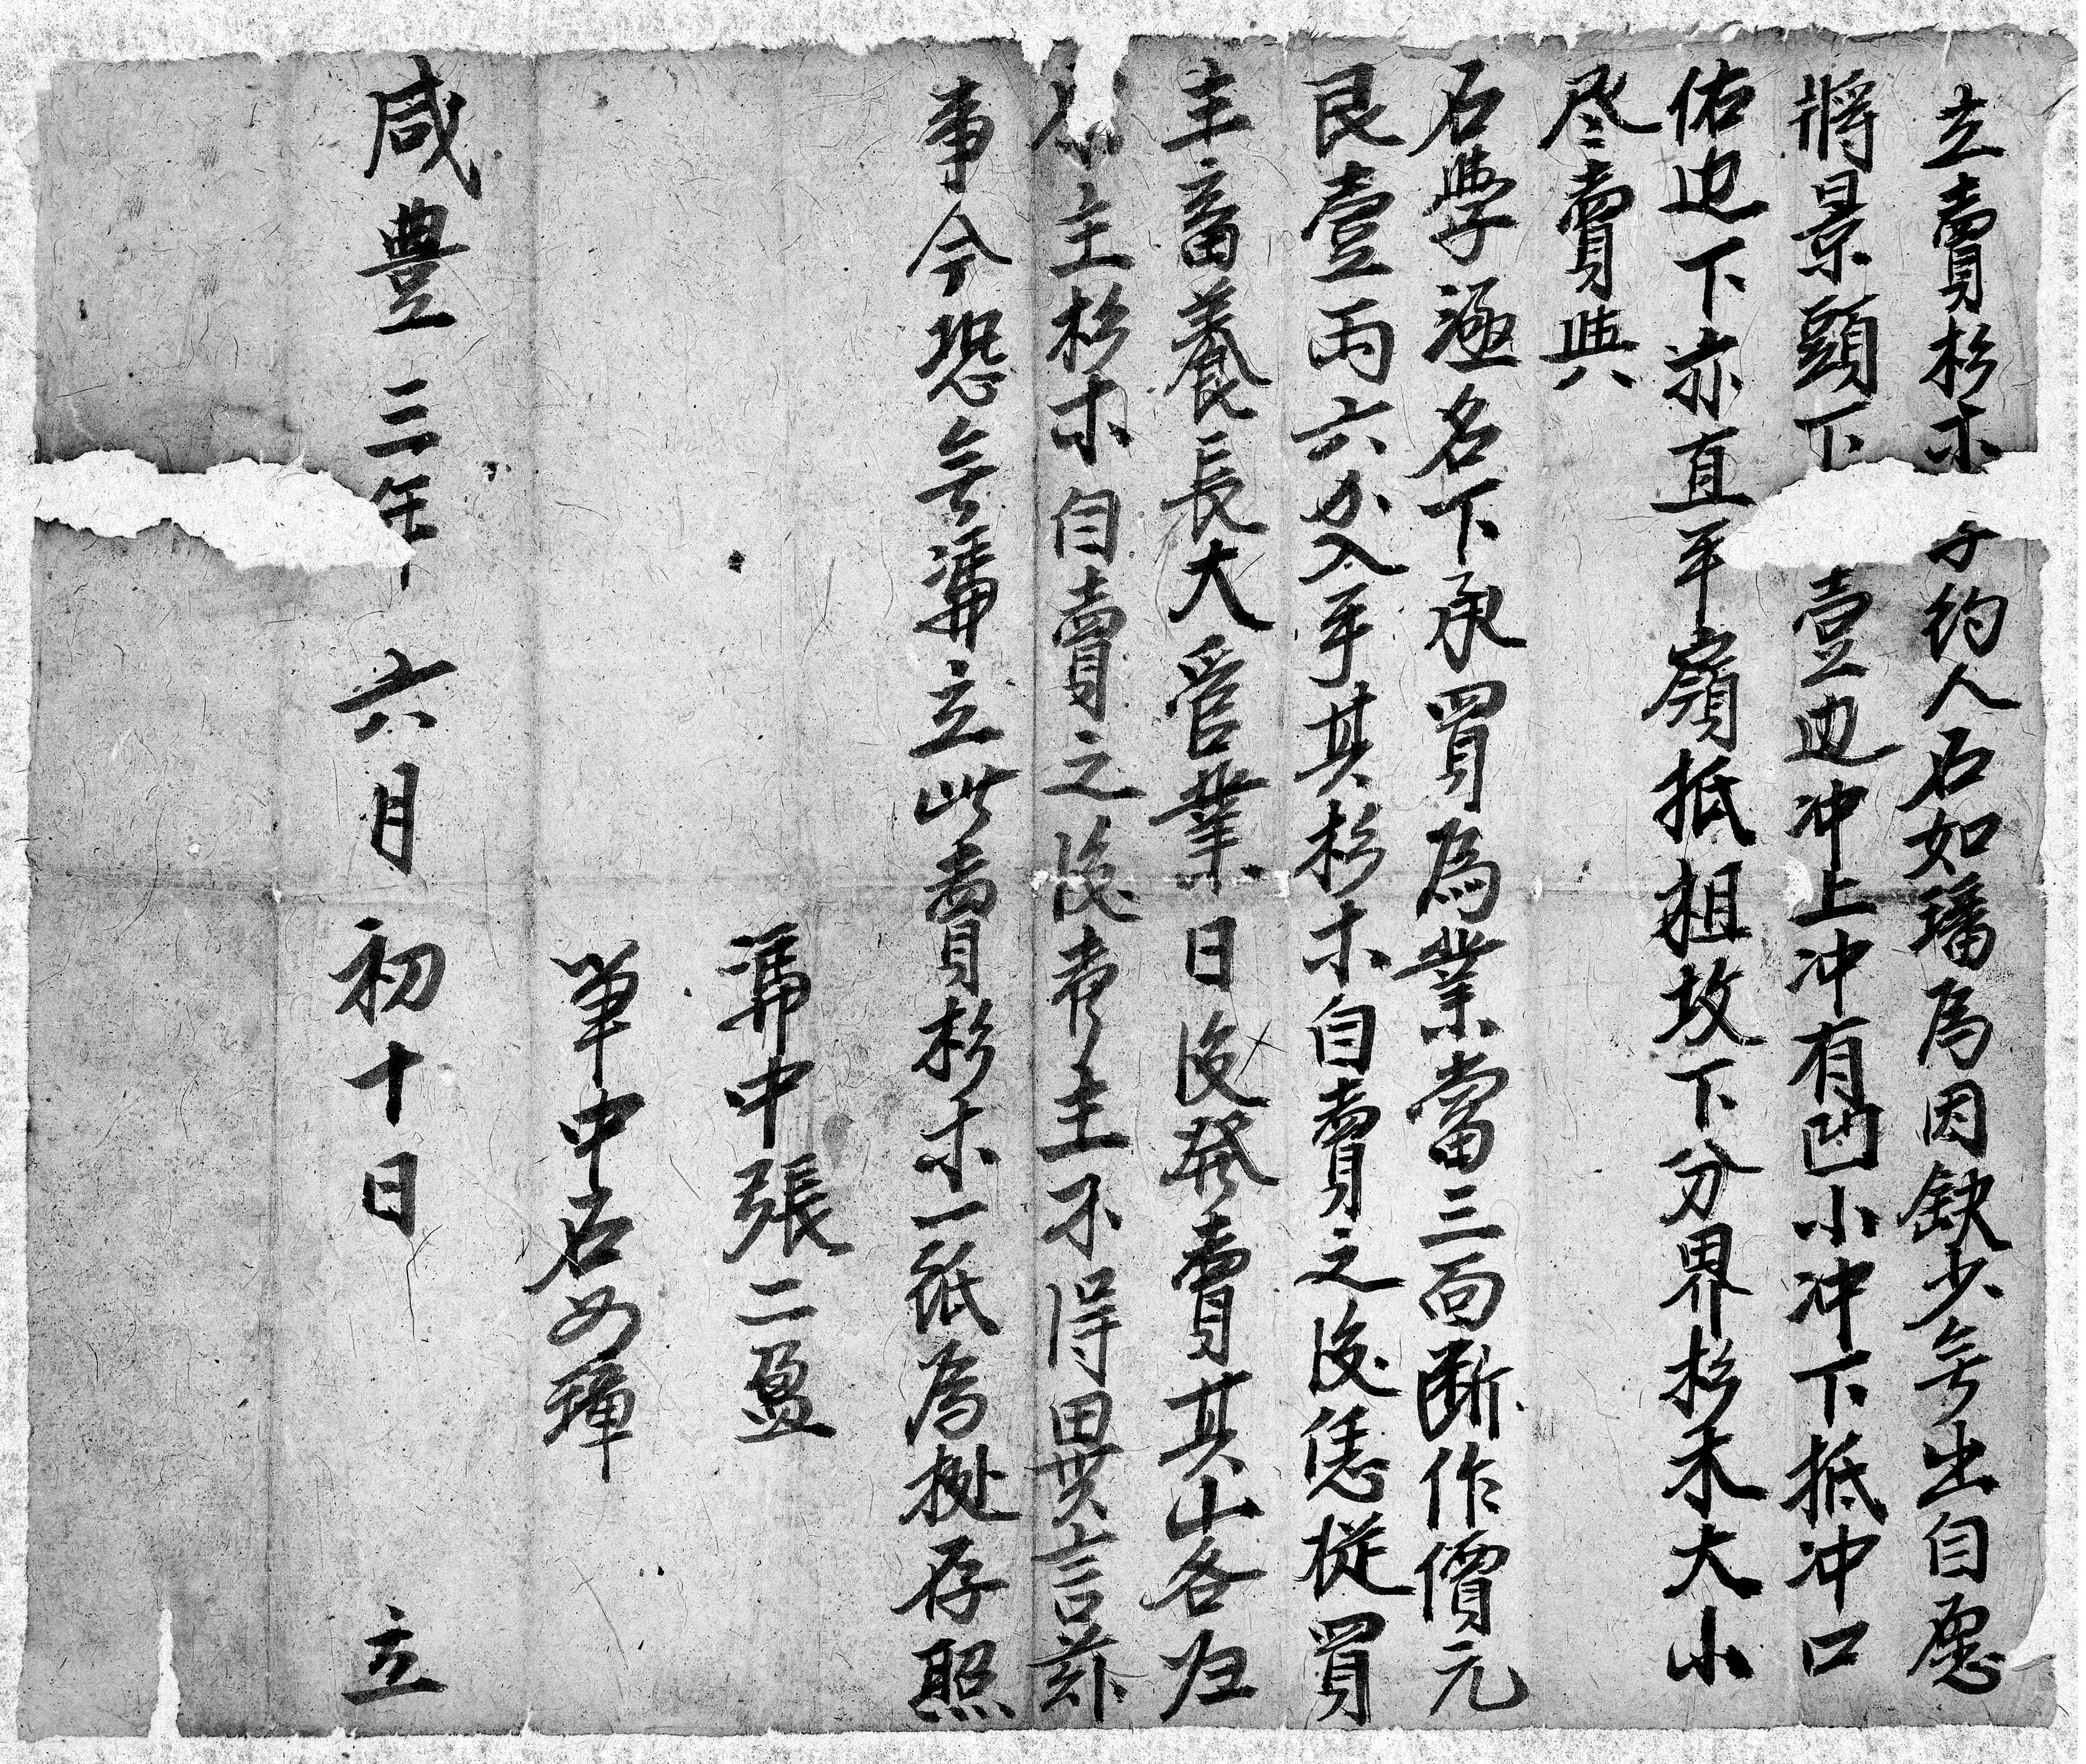 立賣杉木子約人石如璠為因缺少無出自愿
將景頭下壹边冲上冲有凹小冲下抵冲口
佑边下亦直平嶺抵祖坟下分界杉木大小
尽賣與
石學涵名下承買為業當三面断作價元
艮壹両六分入手其杉木自賣之後恁從買
主畜養長大管業日後發賣其山各归
主杉木自賣之後賣主不得異言兹
事今恐無憑立此賣杉木一紙為據存照
憑中張二盈
筆中石如璋
咸豐三年六月初十日立